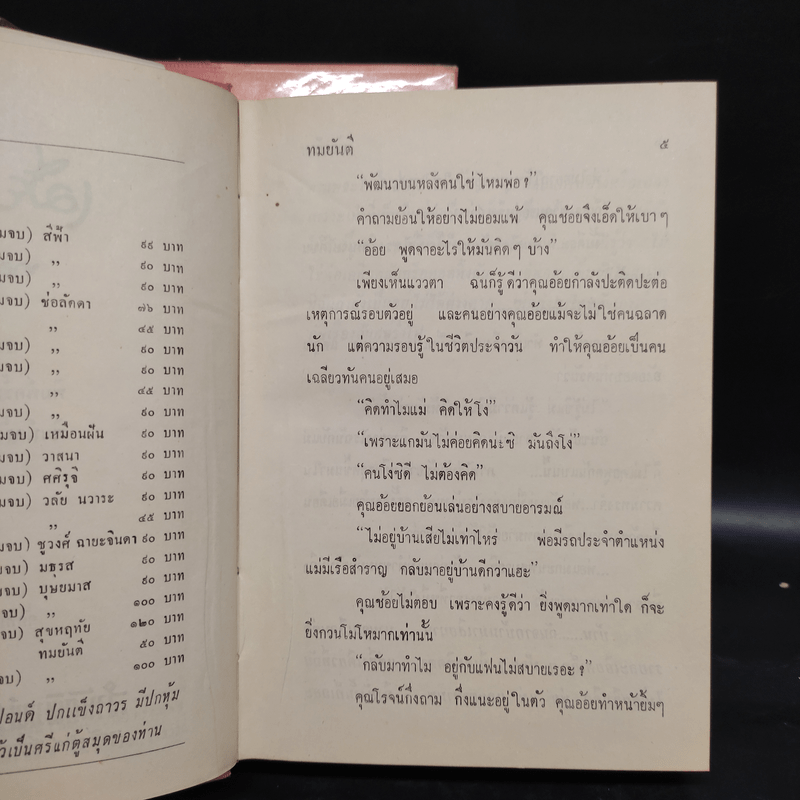 มจบ) สีฟ้า ๙๙ บาท
มจบ) ,, ๙๐ บาท
มจบ) ,, ๙๐ บาท
มจบ) ช่อลัดดา ๗๖ บาท
,, ๔๕ บาท
มจบ) ,, ๙๐ บาท
มจบ) ,, ๙๐ บาท
,, ๔๕ บาท
มจบ) ,, ๙๐ บาท
มจบ) เหมือนฝัน ๙๐ บาท
มจบ) วาสนา ๙๐ บาท
มจบ) ศศิรุจิ ๙๐ บาท
มจบ) วลัย นวาระ ๙๐ บาท
,, ๔๕ บาท
มจบ) ชูวงศ์ ฉายะจินดา ๙๐ บาท
มจบ) มธุรส ๙๐ บาท
มจบ) บุษยมาส ๙๐ บาท
จบ) ,, ๑๐๐ บาท
จบ) สุขหฤทัย ๑๒๐ บาท
ทมยันตี ๕๐ บาท
จบ) ,, ๑๐๐ บาท
ปอนด์ ปกแข็งถาวร มีปกหุ้ม
ว้เป็นศรีแก่ตู้สมุดของท่าน
ทมยันตี ๕
“พัฒนาบนหลังคนใช่ไหมพ่อ?”
คำถามย้อนให้อย่างไม่ยอมแพ้ คุณช้อยจึงเอ็ดให้เบาๆ
“อ้อย พูดจาอะไรให้มันคิดๆ บ้าง”
เพียงเห็นแววตา ฉันก็รู้ดีว่าคุณอ้อยกำลังปะติดปะต่อ
เหตุการณ์รอบตัวอยู่ และคนอย่างคุณอ้อยแม้จะไม่ใช่คนฉลาด
นัก แต่ความรอบรู้ในชีวิตประจำวัน ทำให้คุณอ้อยเป็นคน
เฉลียวทันคนอยู่เสมอ
“คิดทำไมแม่ คิดให้โง่”
“เพราะแกมันไม่ค่อยคิดน่ะซิ มันถึงโง่”
“คนโง่ซิดี ไม่ต้องคิด”
คุณอ้อยยอกย้อนเล่นอย่างสบายอารมณ์
“ไม่อยู่บ้านเสียไม่เท่าไหร่ พ่อมีรถประจำตำแหน่ง
แม่มีเรือสำราญ กลับมาอยู่บ้านดีกว่าแฮะ”
คุณช้อยไม่ตอบ เพราะคงรู้ดีว่า ยิ่งพูดมากเท่าใด ก็จะ
ยิ่งกวนโมโหมากเท่านั้น
“กลับมาทำไม อยู่กับแฟนไม่สบายเรอะ?”
คุณโรจน์กึ่งถาม กึ่งแนะอยู่ในตัว คุณอ้อยทำหน้ายิ้มๆ